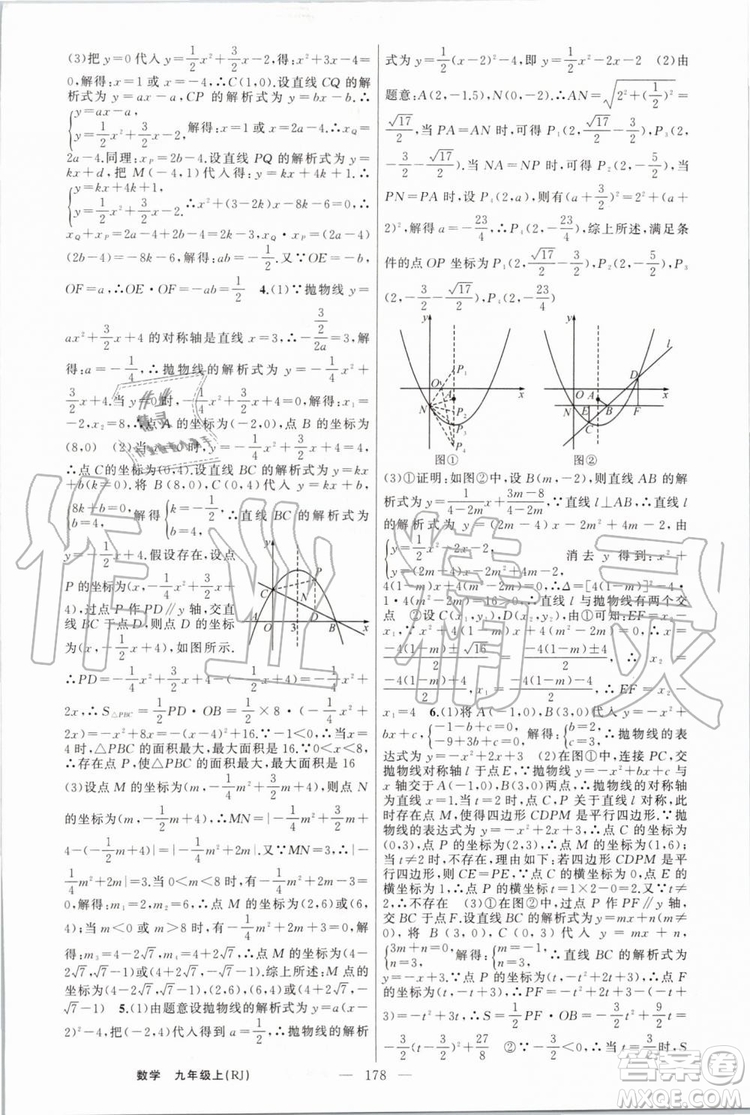 (3)把 y=0 代入 y=1/2x²+3/2x-2 得:x²+3x-4=
0,解得:x=1 或 x=-4,∴C(1,0).设直线 CQ 的解
析式为 y=ax-a,CP 的解析式为 y=bx-b.∴
{y=ax-a, y=1/2x²+3/2x-2, 解得:x=1 或 x=2a-4.∴x_Q=
2a-4.同理:x_P=2b-4.设直线 PQ 的解析式为 y=
kx+d,把 M(-4,1)代入得:y=kx+4k+1.∴
{y=kx+4k+1, y=1/2x²+3/2x-2. ∴x²+(3-2k)x-8k-6=0,∴
x_Q+x_P=2a-4+2b-4=2k-3,x_Q·x_P=(2a-4)
(2b-4)=-8k-6,解得:ab=-1/2.又∵OE=-b,
OF=a,∴OE·OF=-ab=1/2 4.(1)∵抛物线 y=
ax²+3/2x+4 的对称轴是直线 x=3,∴-(3/2)/2a=3,解
得:a=-1/4,∴抛物线的解析式为 y=-1/4x²+
3/2x+4.当 y=0 时,-1/4x²+3/2x+4=0,解得:x₁
=-2,x₂=8,∴点 A 的坐标为(-2,0),点 B 的坐标为
(8,0) (2)当 x=0 时,y=-1/4x²+3/2x+4=4,
∴点 C 的坐标为(0,4).设直线 BC 的解析式为 y=kx
+b(k≠0).将 B(8,0),C(0,4)代入 y=kx+b 得:
{8k+b=0, b=4, 解得{k=-1/2, b=4, ∴直线 BC 的解析式为
y=-1/2x+4.假设存在,设点
P 的坐标为(x,-1/4x²+3/2x
+4),过点 P 作 PD∥y 轴,交直
线 BC 于点 D,则点 D 的坐标
为(x,-1/2x+4),如图所示.
∴PD=-1/4x²+3/2x+4-(-1/2x+4)=-1/4x²+
2x,∴S△PBC=1/2PD·OB=1/2×8·(-1/4x²+
2x)=-x²+8x=-(x-4)²+16.∵-1<0,∴当 x=
4 时,△PBC 的面积最大,最大面积是 16.∵0<x<8,
∴存在点 P,使△PBC 的面积最大,最大面积是 16
(3)设点 M 的坐标为(m,-1/4m²+3/2m+4),则点 N
的坐标为(m,-1/2m+4),∴MN=|-1/4m²+3/2m+
4-(-1/2m+4)|=|-1/4m²+2m|.又∵MN=3,
∴|-1/4m²+2m|=3.当 0<m<8 时,有-1/4m²+
2m-3=0,解得:m₁=2,m₂=6,∴点 M 的坐标为(2,
6)或(6,4);当 m<0 或 m>8 时,有-1/4m²+2m+3
=0,解得:m₃=4-2√7,m₄=4+2√7,∴点 M 的坐标
为(4-2√7,√7-1)或(4+2√7,-√7-1).综上所述,M 点的
坐标为(4-2√7,√7-1)、(2,6)、(6,4)或(4+2√7,
-√7-1) 5.(1)由题意设抛物线的解析式为 y=a(x-
2)²-4,把(0,-2)代入得到 a=1/2,∴抛物线的解析
式为 y=1/2(x-2)²-4,即 y=1/2x²-2x-2 (2)由
题意:A(2,-1.5),N(0,-2),∴AN=√(2²+(1/2)²)=
√17/2,当 PA=AN 时,可得 P₁(2,-3/2+√17/2),P₄(2,
-3/2-√17/2),当 NA=NP 时,可得 P₂(2,-5/2),当
PN=PA 时,设 P₃(2,a),则有(a+3/2)²=(a+2)²+
2²,解得 a=-23/4,∴P₃(2,-23/4),综上所述,满足条
件的点 OP 坐标为 P₁(2,-3/2+√17/2),P₂(2,-5/2),P₃
(2,-3/2-√17/2),P₄(2,-23/4)
图① 图②
(3)①证明:如图②中,设 B(m,-2),则直线 AB 的解
析式为 y=1/(4-2m)x+(3m-8)/(4-2m),∵直线 l⊥AB,∴直线 l
的解析式为 y=(2m-4)x-2m²+4m-2,由
{y=1/2x²-2x-2, y=(2m-4)x-2m²+4m-2, 消去 y 得到:x²+
4(1-m)x+4m²-8m=0,∴Δ=[4(1-m)]²-4·
1·(4m²-8m)=16>0,∴直线 l 与抛物线有两个交
点 ②设 C(x₁,y₁),D(x₂,y₂),由①可知:EF=x₂-
x₁,x₁=(-4(1-m)-√16)/2,x₂=
(-4(1-m)+√16)/2,∴EF=x₂-
x₁=4 6.(1)将 A(-1,0),B(3,0)代入 y=-x²+
bx+c,{-1-b+c=0, -9+3b+c=0, 解得:{b=2, c=3, ∴抛物线的表
达式为 y=-x²+2x+3 (2)在图①中,连接 PC,交
抛物线对称轴 l 于点 E,∵抛物线 y=-x²+bx+c 与
x 轴交于 A(-1,0),B(3,0)两点,∴抛物线的对称轴
为直线 x=1.当 t=2 时,点 C,P 关于直线 l 对称,此
时存在点 M,使得四边形 CDPM 是平行四边形.∵抛
物线的表达式为 y=-x²+2x+3,∴点 C 的坐标为
(0,3),点 P 的坐标为(2,3),∴点 M 的坐标为(1,6);
当 t≠2 时,不存在,理由如下:若四边形 CDPM 是平
行四边形,则 CE=PE,∵点 C 的横坐标为 0,点 E 的
横坐标为 1,∴点 P 的横坐标 t=1×2-0=2.又∵t≠
2,∴不存在 (3)①在图②中,过点 P 作 PF∥y 轴,
交 BC 于点 F.设直线 BC 的解析式为 y=mx+n(m≠
0),将 B(3,0)、C(0,3)代入 y=mx+n,
{3m+n=0, n=3, 解得:{m=-1, n=3, ∴直线 BC 的解析式为 y=
-x+3.∵点 P 的坐标为(t,-t²+2t+3),∴点 F
的坐标为(t,-t+3),∴PF=-t²+2t+3-(-t+3)
=-t²+3t,∴S=1/2PF·OB=-3/2t²+9/2t=
-3/2(t-3/2)²+27/8 ②∵-3/2<0,∴当 t=3/2时,S
数学 九年级上(RJ)
— 178 —
作业精灵
答案圈
MXQE.COM